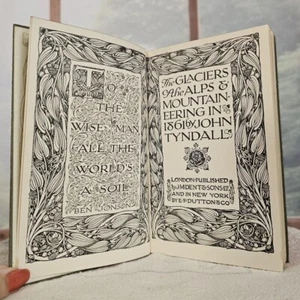 TO
THE
WISE MAN
ALL THE
WORLD'S
A SOIL
BEN JONSON
The GLACIERS
of the ALPS &
MOUNTAIN-
EERING IN
1861 by JOHN
TYNDALL
LONDON: PUBLISHED
by J.M. DENT & SONS LTD
AND IN NEW YORK
BY E.P. DUTTON & CO